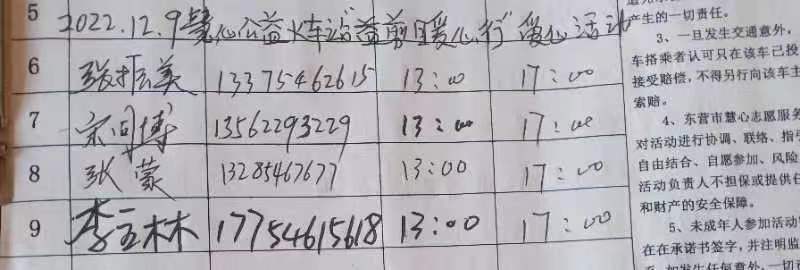 5 2022.12.9慧心公益火车站"益剪暖心行"爱心活动
6 张振美 13375462615 13:00 17:00
7 宋同博 13562293229 13:00 17:00
8 张蒙 13285467677 13:00 17:00
9 李玉林 17754615618 13:00 17:00
产生的一切责任。
3、一旦发生交通意外，
车搭乘者认可只在该车已投
接受赔偿，不得另行向该车主
索赔。
4、东营市慧心志愿服务
对活动进行协调、联络、指
自由结合、自愿参加、风险
活动负责人不担保或提供任
和财产的安全保障。
5、未成年人参加活动
在在承诺书签字，并注明监
如发生任何意外，一切